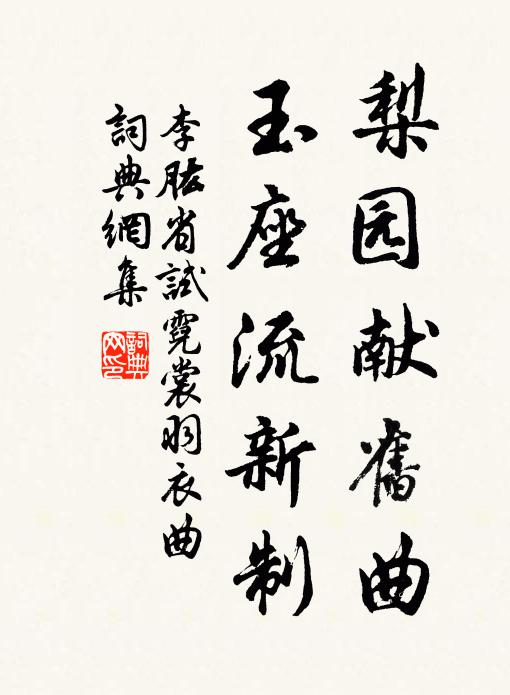 梨园献舊曲
玉座流新制
李肱省試霓裳羽衣曲
詞典網集
詞典网印